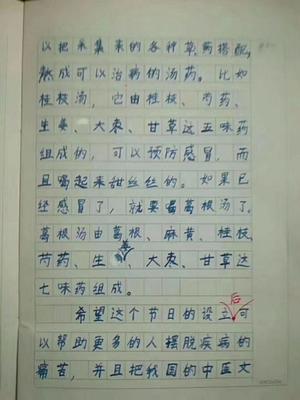 以把采集来的各种草药搭配,
熬成可以治病的汤药。比如
桂枝汤,它由桂枝、芍药、
生姜、大枣、甘草这五味药
组成的,可以预防感冒,而
且喝起来甜丝丝的。如果已
经感冒了,就要喝葛根汤了。
葛根汤由葛根、麻黄、桂枝、
芍药、生姜、大枣、甘草这
七味药组成。
希望这个节日的设立后可
以帮助更多的人摆脱疾病的
痛苦,并且把我国的中医文